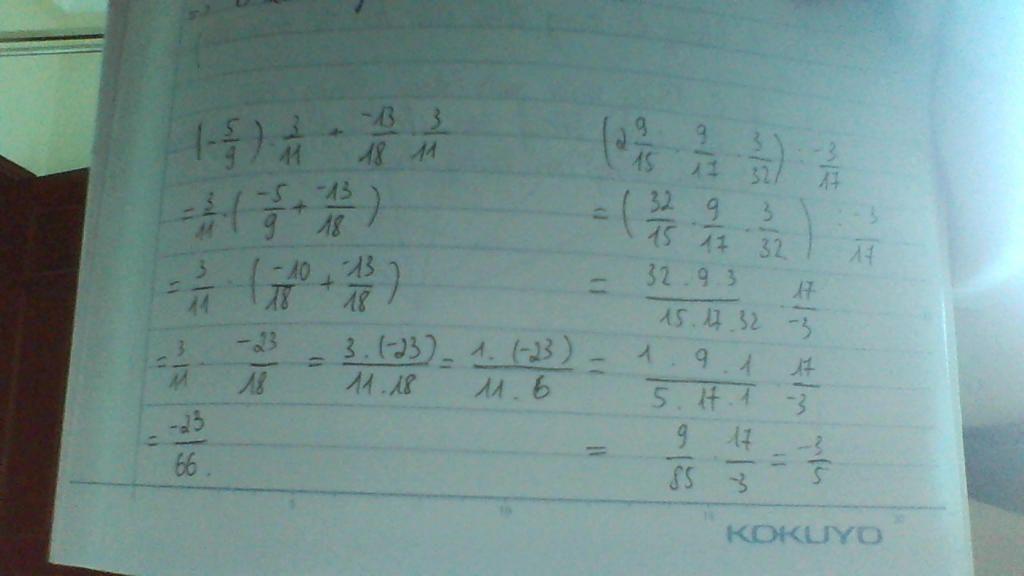 (-5/9) · 3/11 + -13/18 · 3/11
= 3/11 · (-5/9 + -13/18)
= 3/11 · (-10/18 + -13/18)
= 3/11 · -23/18 = 3 . (-23)/11 . 18 = 1 . (-23)/11 . 6
= -23/66.
(2 9/15 · 9/17 · 3/32) : -3/17
= (32/15 · 9/17 · 3/32) : -3/17
= 32 . 9 . 3/15 . 17 . 32 · 17/-3
= 1 . 9 . 1/5 . 17 . 1 · 17/-3
= 9/85 · 17/-3 = -3/5
5 10 15 20
KOKUYO